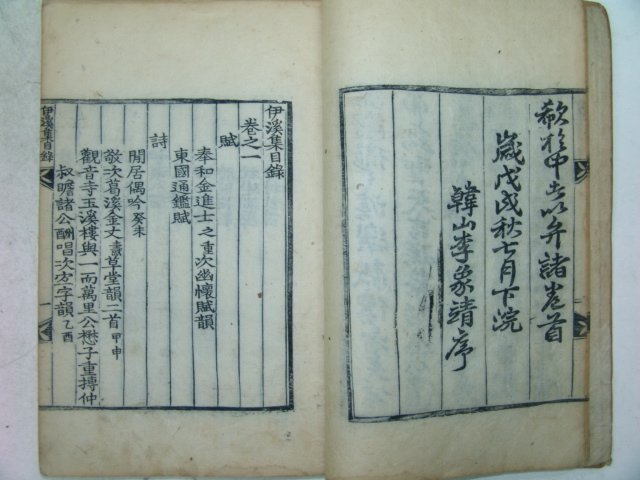 歲戊戌秋七月下浣
韓山李象靖序
伊溪集目錄
卷之一
賦
奉和金進士之重次幽懷賦韻
東國通鑑賦
詩
閒居偶吟癸未
敬次葛溪金丈草堂韻二首甲申
觀音寺玉溪樓與一而萬里公懋子重摶仲
叔瞻諸公酬唱次方字韻乙酉
伊溪集目錄
一